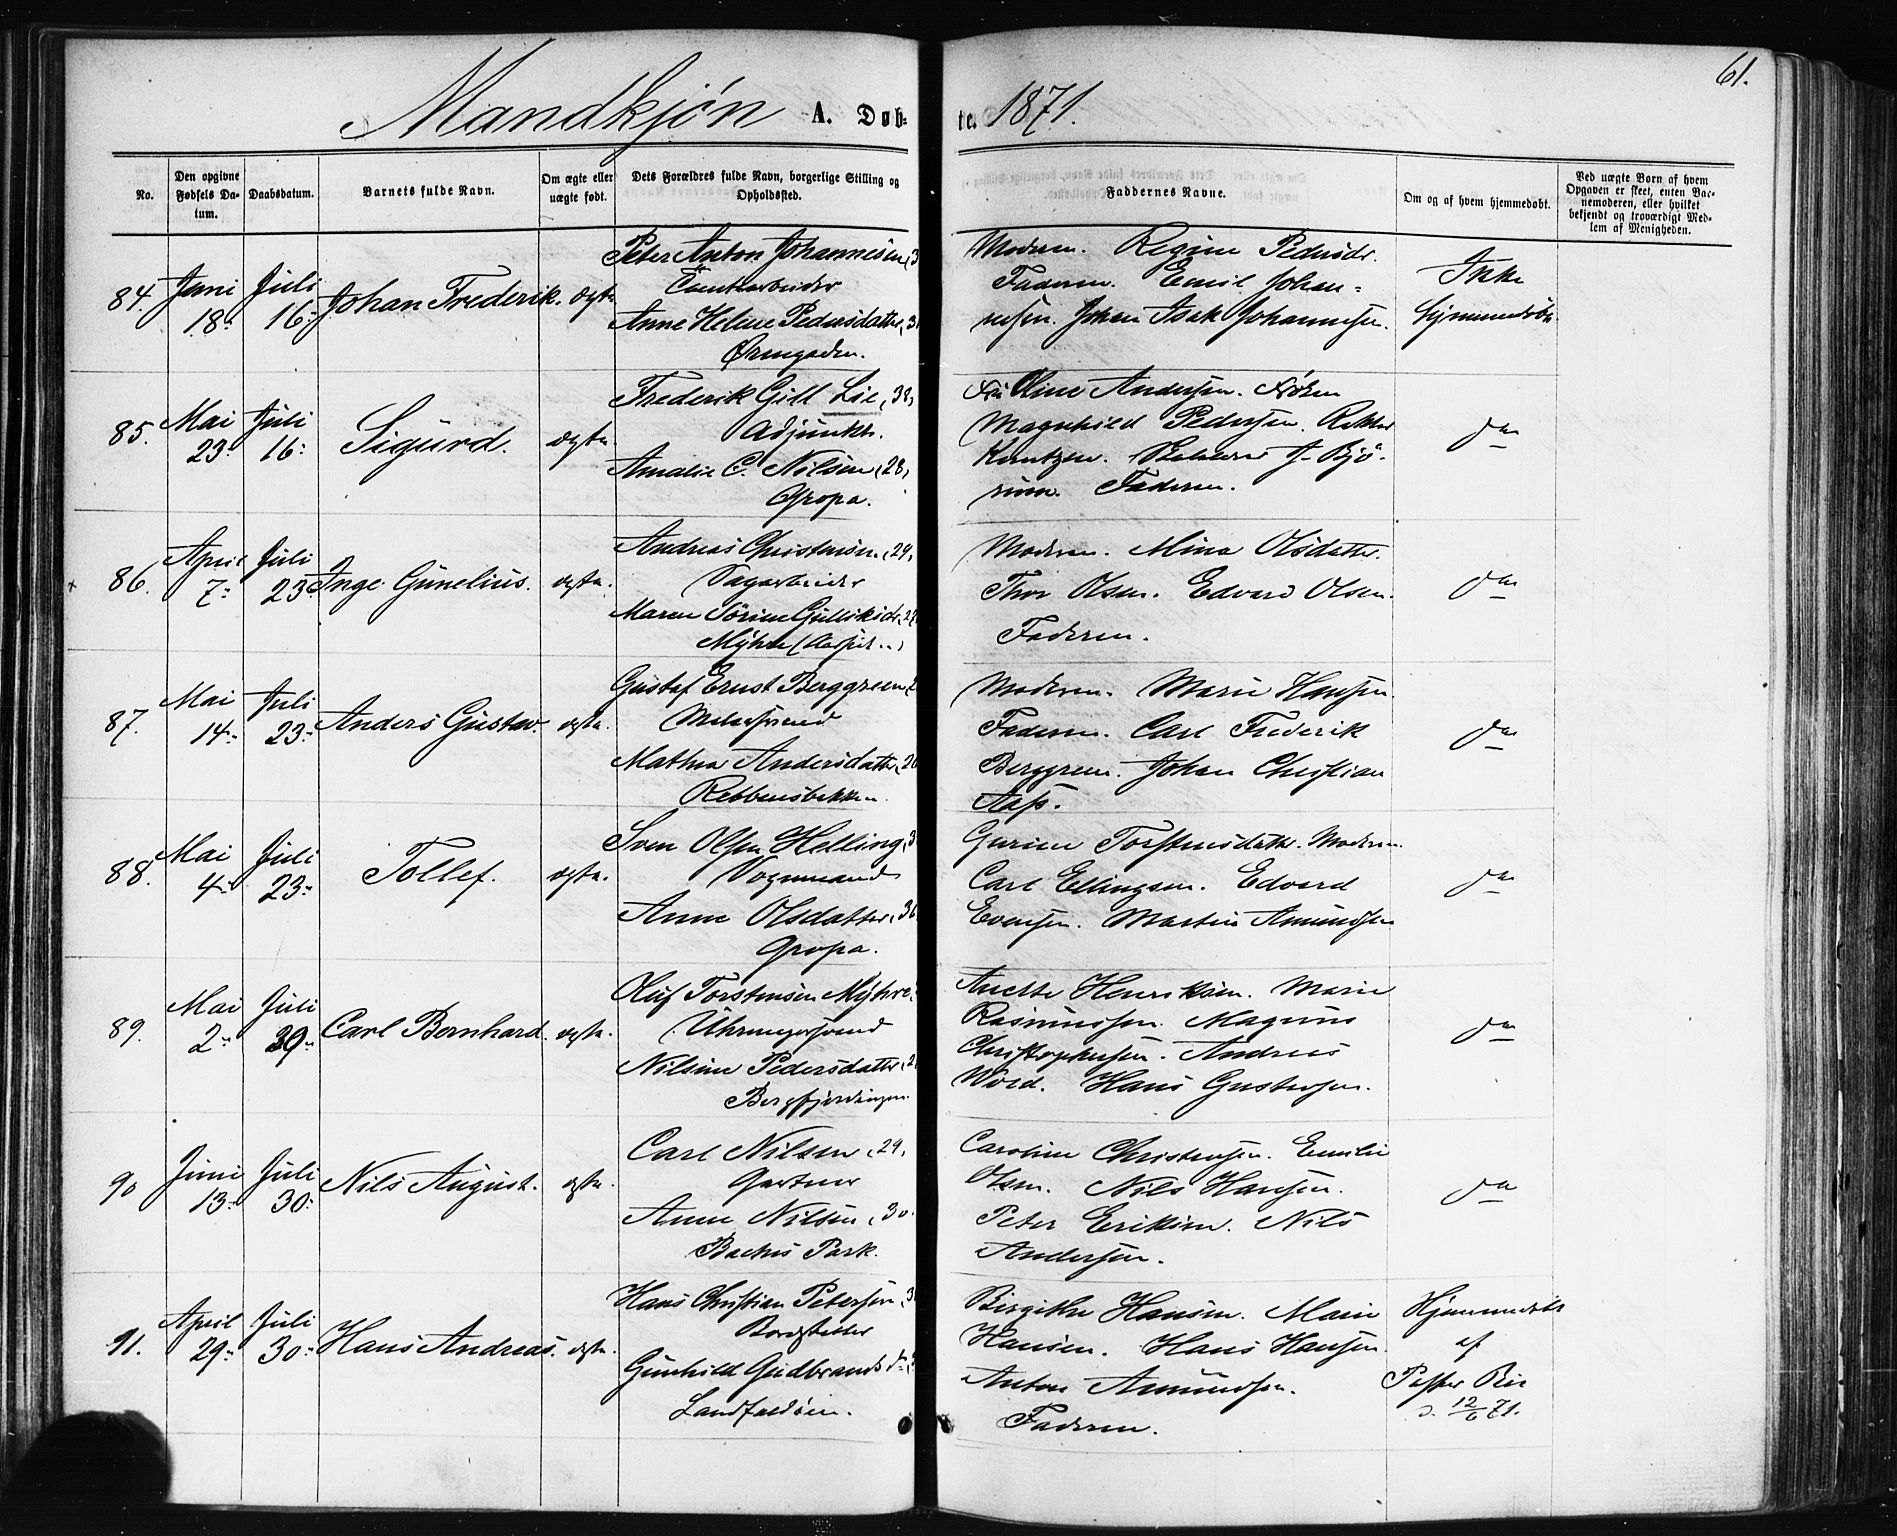 61.
Mandkjøn A. Døb-
te. 1871.
No.
Den opgivne Fødsels Da-
tum.
Daabsdatum.
Barnets fulde Navn.
Om ægte eller
uægte født.
Dets Forældres fulde Navn, borgerlige Stilling og
Opholdssted.
Faddernes Navne.
Om og af hvem hjemmedøbt.
Ved uægte Børn af hvem
Opgaven er skeet, enten Bar-
nemoderen, eller hvilket
bekjendt og troværdigt Med-
lem af Menigheden.
84. Juni 18 Juli 16 Johan Frederik. ægte
Peter Anton Johannesen
Anne Helene Pedersdatter
Øvregaden.
Moderen. Regine Pedersdr.
Faderen. Emil Johan-
nesen. Johan Isak Johannesen.
Ikke
hjemmedøbt
85. Mai 23 Juli 16 Sigurd. ægte.
Frederik Gill Lie, 38,
Adjunkt.
Amalie C. Nilsen, 28,
Gropa.
Fru Oline Andersen. Frøken
Magnhild Pedersen. Rektor
Faderen.
do
86. April 7 Juli 23 Inge Gunelius. ægte.
Andreas Christensen, 29,
Sagarbeider
Maren Sørine Gulliksdr.
Myhre
Moderen. Mina Olsdatter.
Thor Olsen. Edvard Olsen.
Faderen.
do
87. Mai 14 Juli 23 Anders Gustav. ægte.
Gustaf Ernst Berggreen
Malersvend
Mathea Andersdatter
Rebbensbekken.
Moderen. Marie Hansen.
Faderen. Carl Frederik
Berggreen. Johan Christian
Aass.
do
88. Mai 4 Juli 23 Tollef. ægte.
Sven Olsen Helling
Vognmand
Anne Olsdatter, 36
Gropa.
Gurine Torstensdatter. Moderen.
Carl Ellingsen. Edvard
Evensen. Martin Amundsen
do
89. Mai 2 Juli Carl Bernhard. ægte.
Oluf Torstensen Myhre
Uhrmagersvend
Nilsine Pedersdatter
Bergfjerdingen.
Anette Henriksen. Marie
Rasmussen. Magnus
Christophersen. Andreas
Wold. Hans Gustavsen.
do
90 Juni 13 Juli 30 Nils August. ægte.
Carl Nilsen, 29,
Gartner
Anne Nilsen, 30
Baches Park.
Caroline Christensen. Emilie
Olsen. Nils Hansen.
Peter Eriksen. Nils
Andersen.
do
91. April 29 Juli 30 Hans Andreas. ægte.
Hans Christian Petersen
Bordstabler
Gunhild Gudbrandsd
Landfaldøen.
Birgithe Hansen. Marie
Hansen. Hans Hansen.
Anton Amundsen.
Faderen.
Hjemmedøbt
af
12/6 71.